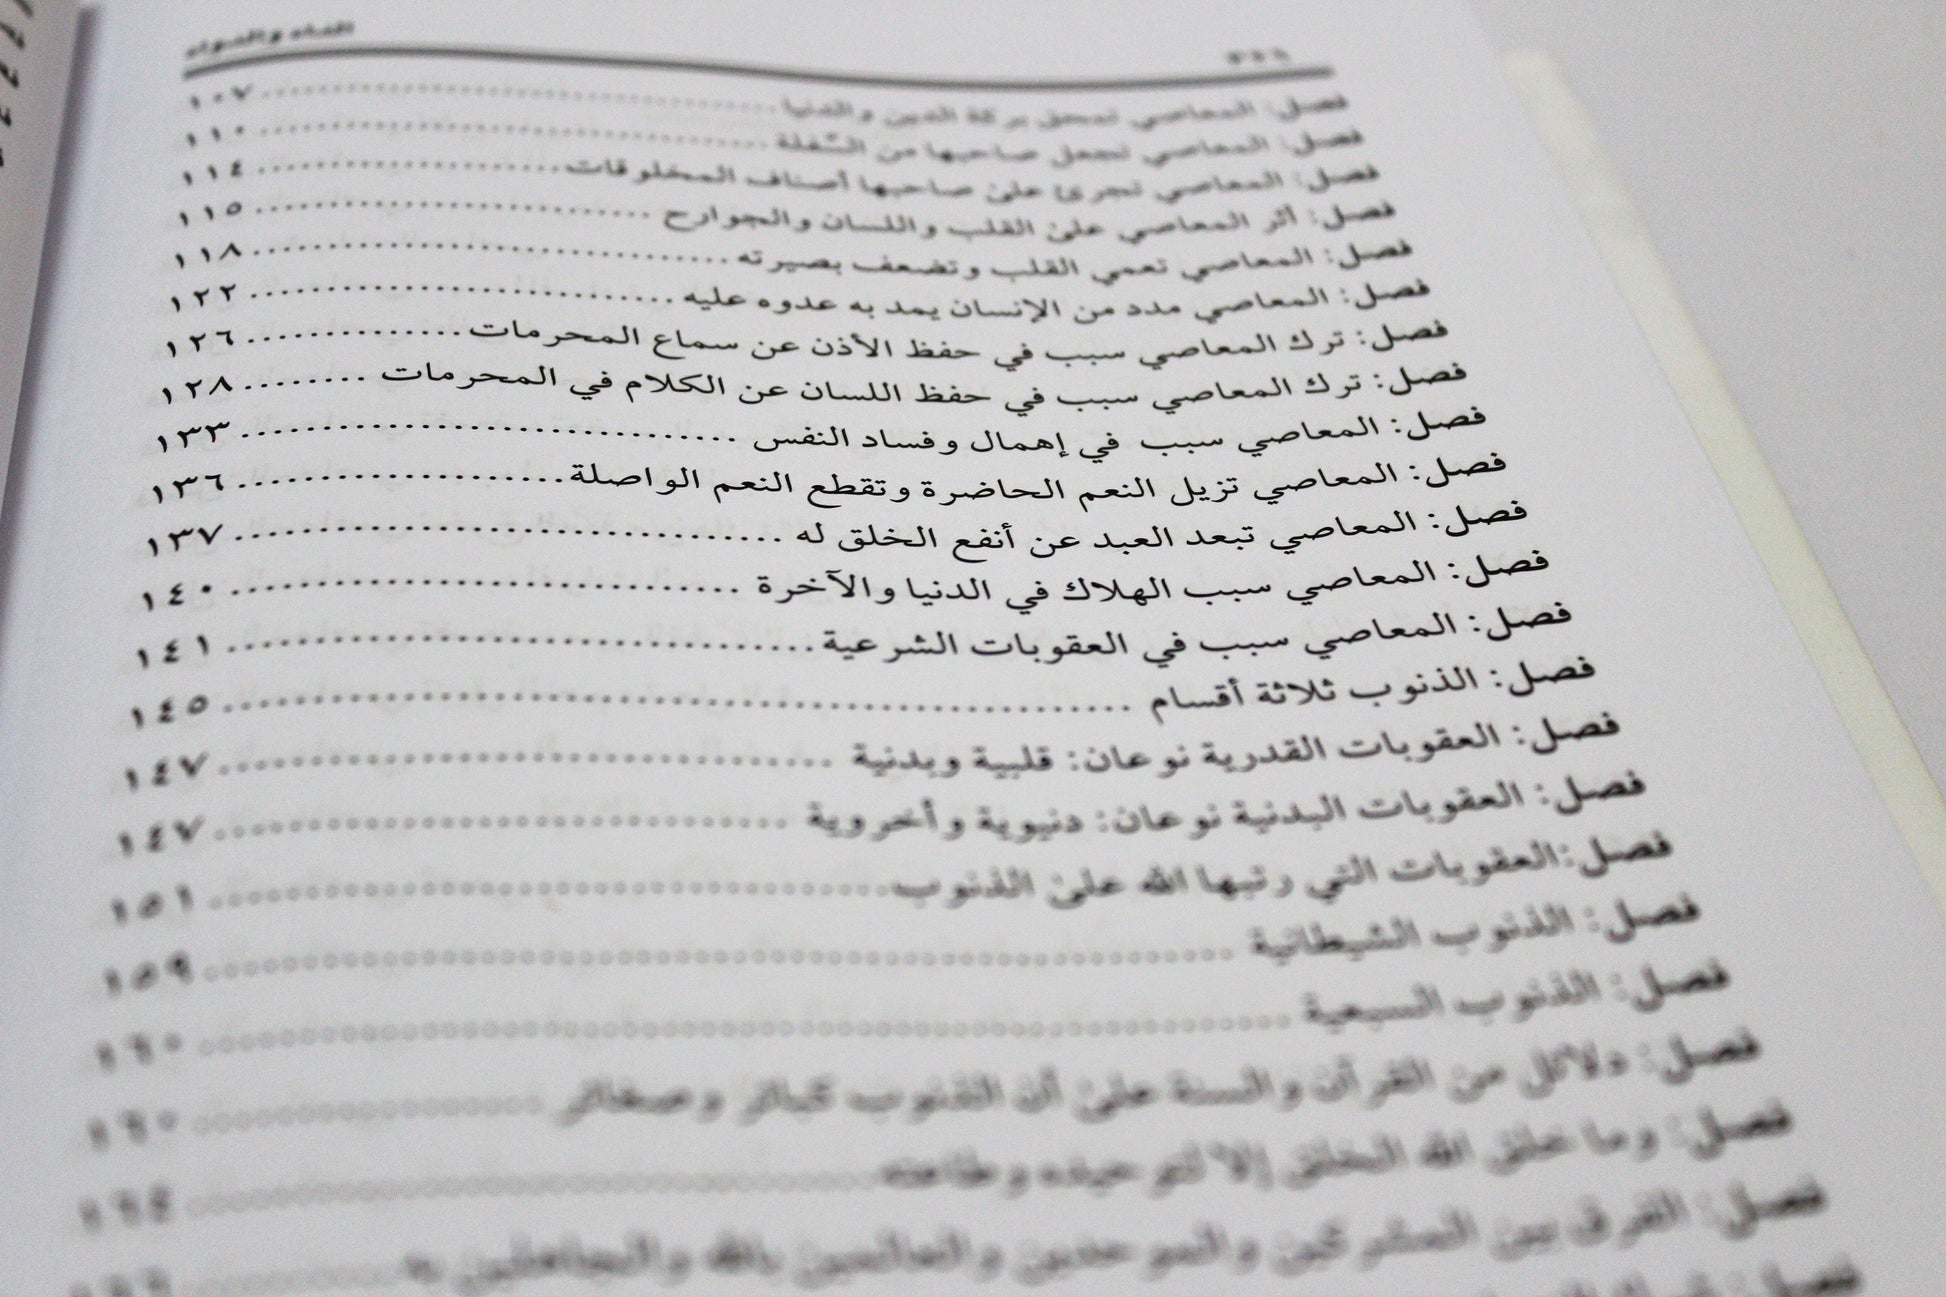 الداء والدواء
فصل: المعاصي تمحق بركة الدين والدنيا ١٠٧
فصل: المعاصي تجعل صاحبها من السَّفلة ١١٠
فصل: المعاصي تجرئ على صاحبها أصناف المخلوقات ١١٤
فصل: أثر المعاصي على القلب واللسان والجوارح ١١٥
فصل: المعاصي تعمي القلب وتضعف بصيرته ١١٨
فصل: المعاصي مدد من الإنسان يمد به عدوه عليه ١٢٢
فصل: ترك المعاصي سبب في حفظ الأذن عن سماع المحرمات ١٢٦
فصل: ترك المعاصي سبب في حفظ اللسان عن الكلام في المحرمات ١٢٨
فصل: المعاصي سبب في إهمال وفساد النفس ١٣٣
فصل: المعاصي تزيل النعم الحاضرة وتقطع النعم الواصلة ١٣٦
فصل: المعاصي تبعد العبد عن أنفع الخلق له ١٣٧
فصل: المعاصي سبب الهلاك في الدنيا والآخرة ١٤٠
فصل: المعاصي سبب في العقوبات الشرعية ١٤١
فصل: الذنوب ثلاثة أقسام ١٤٥
فصل: العقوبات القدرية نوعان: قلبية وبدنية ١٤٧
فصل: العقوبات البدنية نوعان: دنيوية وأخروية ١٤٧
فصل: العقوبات التي رتبها الله على الذنوب ١٥١
فصل: الذنوب الشيطانية ١٥٩
فصل: الذنوب السبعية ١٦٠
فصل: دلائل من القرآن والسنة على أن الذنوب كبائر وصغائر ١٦٠
فصل: وما خلق الله الخلق إلا لتوحيده وطاعته ١٦٤
فصل: الفرق بين المشركين والموحدين والعالمين بالله والجاهلين به
فصل: